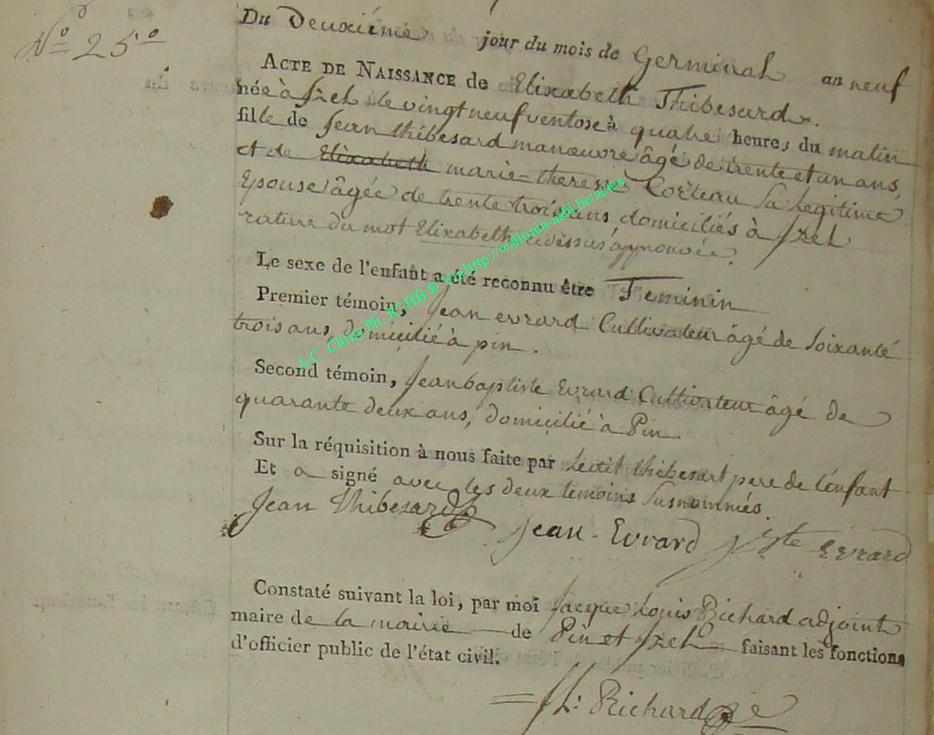 N.º 25.º
Du Deuxiéme jour du mois de Germinal an neuf
ACTE DE NAISSANCE de Elizabeth Thibesard.
née à Izel le vingt neuf ventose à quatre heures du matin
fille de Jean thibesard manœuvre âgé de trente et un ans
et de Elizabeth marie-therese Corteau sa Legitime
Epouse âgée de trente trois ans domiciliés à Izel
rature du mot Elizabeth ci dessus approuvée.
Le sexe de l'enfant a été reconnu être Feminin
Premier témoin, Jean evrard Cultivateur âgé de Soixante
trois ans, domicilié à pin.
Second témoin, Jean baptiste Evrard Cultivateur âgé de
quarante deux ans, domicilié à Pin.
Sur la réquisition à nous faite par Ledit thibesart pere de l'enfant
Et a signé avec les deux temoins susnommés.
Jean Thibesard Jean-Evrard J Bte Evrard
Constaté suivant la loi, par moi Jacque Louis Richard adjoint
maire de la mairie de Pin et Izel faisant les fonctions
d'officier public de l'état civil.
Richard
http://wallonia-asbl.be/actes